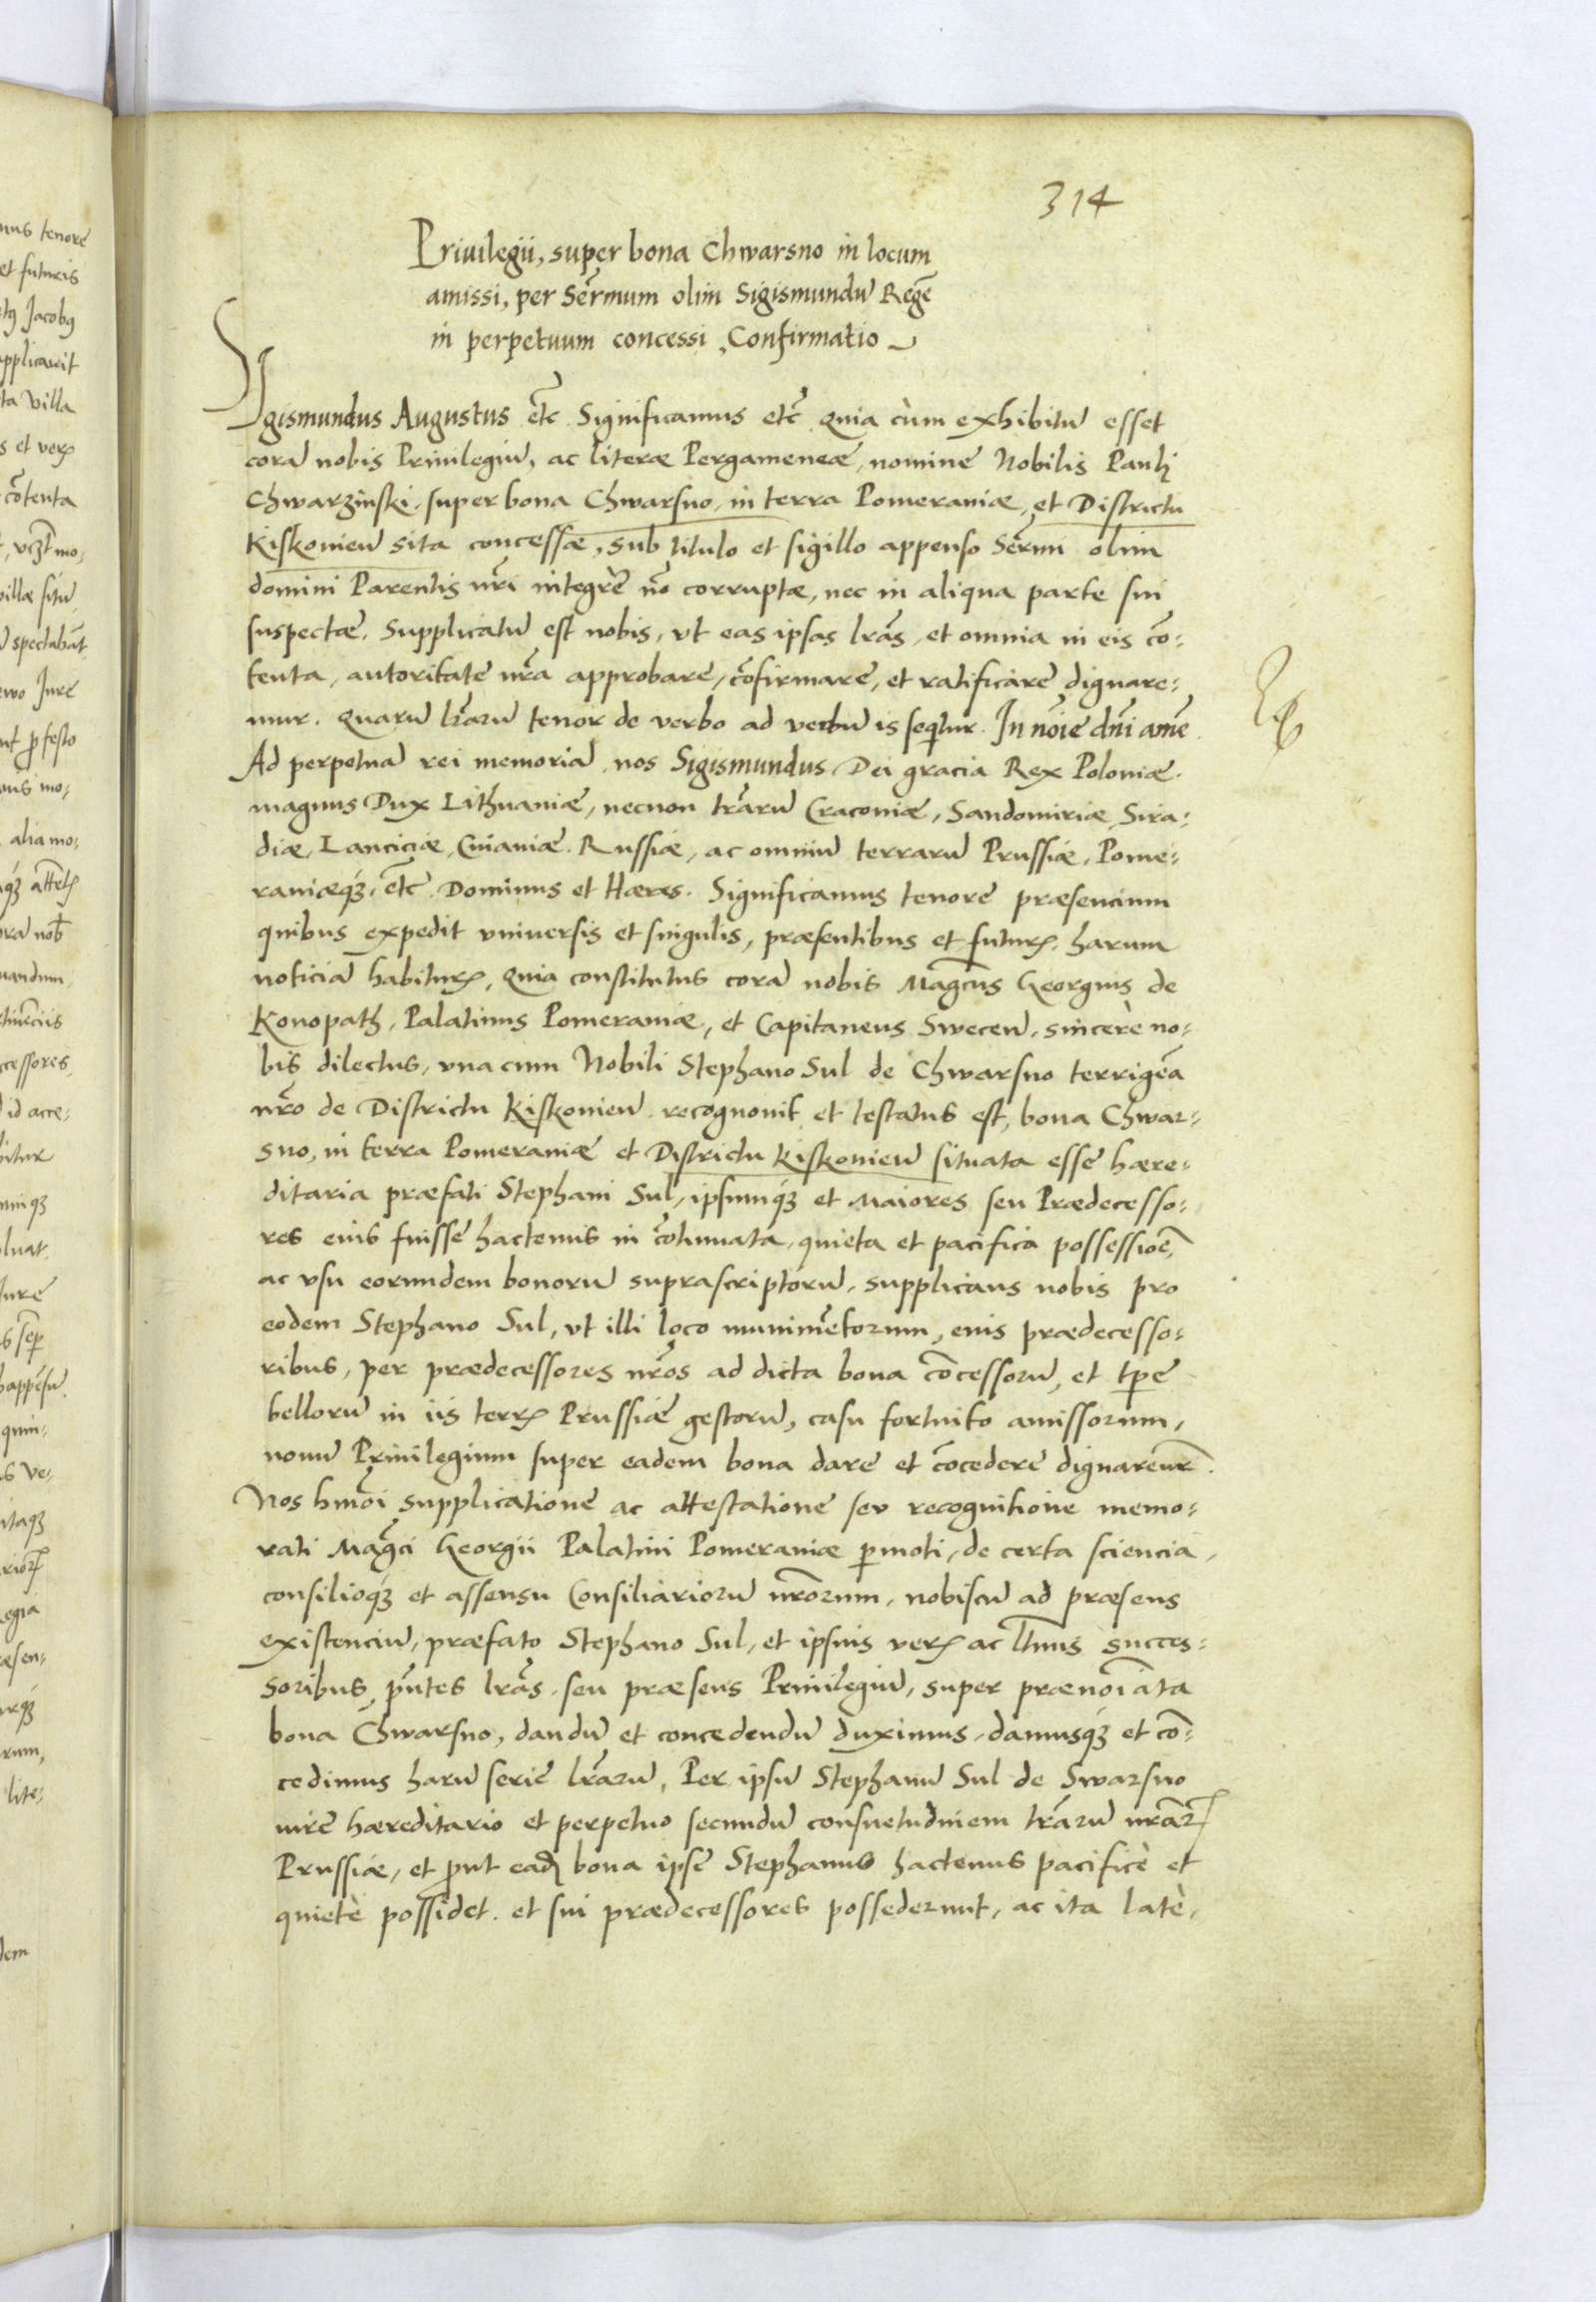 314
Priuilegii, super bona Chwarsno in locum
amissi, per Serm̃um olim Sigismundũ Regẽ
in perpetuum concessi, Confirmatio
Sigismundus Augustus etc̃ Significamus etc̃ Quia cùm exhibitũ esset
corã nobis Priuilegiũ, ac literæ Pergameneæ, nomine Nobilis Pauli
Chwarzinski, super bona Chwarsno, in terra Pomeraniæ, et Districtu
Kiskonieñ sita concessæ, sub titulo et sigillo appenso Serm̃i olim
domini Parentis nr̃i integrè nõ corruptæ, nec in aliqua parte sui
suspectæ. Supplicatũ est nobis, vt eas ipsas lrãs, et omnia in eis cõ-
tenta, autoritate nr̃a approbare, cõfirmare, et ratificare dignare-
mur. Quarũ lrãrũ tenor de verbo ad verbũ is seqtur. In nõie dñi amẽ.
Ad perpetuã rei memoriã, nos Sigismundus Dei gracia Rex Poloniæ.
magnus Dux Lithuaniæ, necnon trãrũ Craconiæ, Sandomiriæ, Sira-
diæ, Lanciciæ, Cuiauiæ. Russiæ, ac omniũ terrarũ Prussiæ, Pome-
raniæqʒ, etc̃. Dominus et Hæres. Significamus tenore præsencium
quibus expedit vniuersis et singulis, præsentibus et futurꝭ. harum
noticiã habiturꝭ, Quia constitutus corã nobis Magcũs Georgius de
Konopath, Palatinus Pomeraniæ, et Capitaneus Sweceñ, sincerè no-
bis dilectus, vna cum Nobili Stephano Sul de Chwarsno terrigẽa
nr̃o de Districtu Kiskonieñ recognouit et testatus est, bona Chwar-
sno, in terra Pomeraniæ et Districtu Kiskonieñ situata esse hære-
ditaria præfati Stephani Sul, ipsumqʒ et Maiores seu Prædecesso-
res eius fuisse hactenus in cõtinuata, quieta et pacifica possessiõe,
ac vsu eorundem bonorũ suprascriptorũ, supplicans nobis pro
eodem Stephano Sul, vt illi loco munimẽtorum, euis prædecesso-
ribus, per prædecessores nr̃os ad dicta bona cõcessorũ, et tp̃e
bellorũ in iis terrꝭ Prussiæ gestorũ, casu fortuito amissorum,
nouũ Priuilegium super eadem bona dare et cõcedere dignaremr̃.
Nos hmõi supplicatione ac attestatione sev recognitione memo-
rati Magc̃i Georgii Palatini Pomeraniæ ꝑmoti, de certa sciencia,
consilioqʒ et assensu Consiliariorũ nr̃orum, nobiscũ ad præsens
existenciũ, præfato Stephano Sul, et ipsius verꝭ ac ltĩmis succes-
soribus, pñtes lrãs, seu præsens Priuilegiũ, super prænoĩata
bona Chwarsno, dandũ et concedendũ duximus, damusqʒ et cõ-
cedimus harũ serie lrãrũ, Per ipsũ Stephanũ Sul de Swarsno
iure hæreditario et perpetuo secundũ consuetudinem trãrũ nr̃arꝭ
Prussiæ, et ꝓut eadꝭ bona ipse Stephanus hactenus pacificè et
quietè possidet. et sui prædecessores possederunt, ac ita latè,